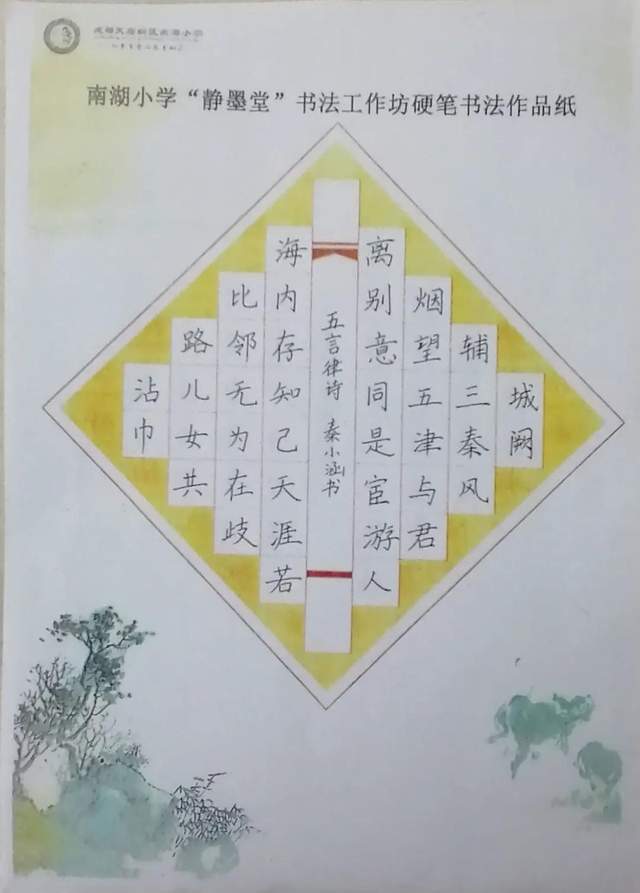 南湖小学“静墨堂”书法工作坊硬笔书法作品纸
城阙
辅三秦风
烟望五津与君
离别意同是宦游人
五言律诗 秦小涵书
海内存知己天涯若
比邻无为在歧
路儿女共
沾巾